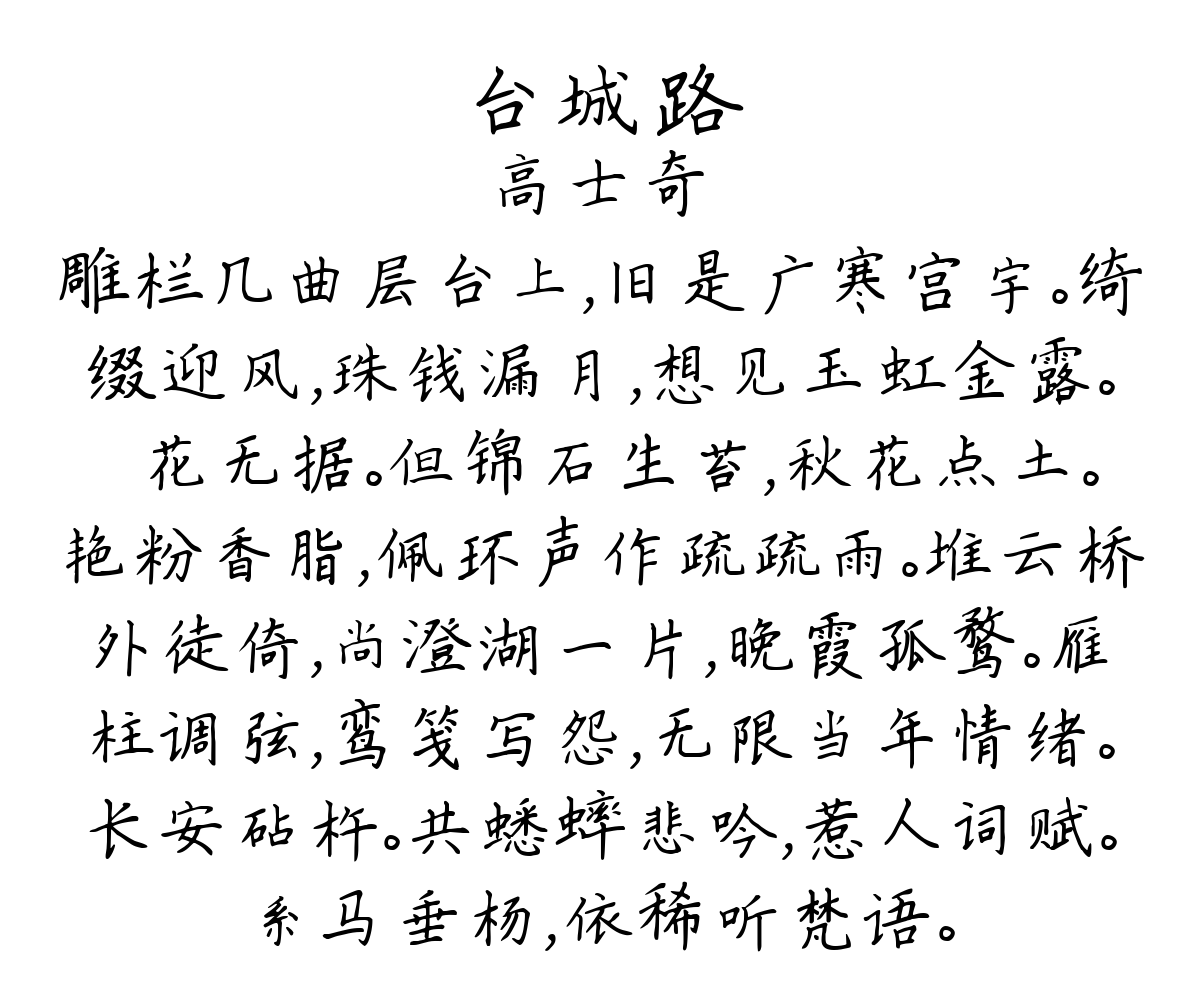 台城路
高士奇
雕栏几曲层台上,旧是广寒宫宇。绮
缀迎风,珠钱漏月,想见玉虹金露。
花无据。但锦石生苔,秋花点土。
艳粉香脂,佩环声作疏疏雨。堆云桥
外徒倚,尚澄湖一片,晚霞孤鹜。雁
柱调弦,鸾笺写怨,无限当年情绪。
长安砧杵。共蟋蟀悲吟,惹人词赋。
系马垂杨,依稀听梵语。